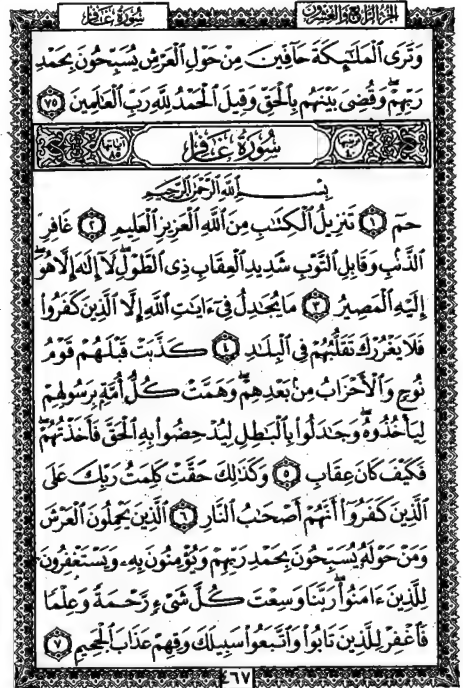 الجزء الرابع والعشرون
سورة غافر
وَتَرَى الْمَلَٰٓئِكَةَ حَآفِّينَ مِنْ حَوْلِ الْعَرْشِ يُسَبِّحُونَ بِحَمْدِ
رَبِّهِمْ ۖ وَقُضِىَ بَيْنَهُم بِالْحَقِّ وَقِيلَ الْحَمْدُ لِلَّهِ رَبِّ الْعَٰلَمِينَ ٧٥
سُورَةُ غَافِرٍ
بِسْمِ اللَّهِ الرَّحْمَٰنِ الرَّحِيمِ
حمٓ ١ تَنزِيلُ الْكِتَٰبِ مِنَ اللَّهِ الْعَزِيزِ الْعَلِيمِ ٢ غَافِرِ
الذَّنۢبِ وَقَابِلِ التَّوْبِ شَدِيدِ الْعِقَابِ ذِى الطَّوْلِ ۖ لَآ إِلَٰهَ إِلَّا هُوَ ۖ
إِلَيْهِ الْمَصِيرُ ٣ مَا يُجَٰدِلُ فِىٓ ءَايَٰتِ اللَّهِ إِلَّا الَّذِينَ كَفَرُوا۟
فَلَا يَغْرُرْكَ تَقَلُّبُهُمْ فِى الْبِلَٰدِ ٤ كَذَّبَتْ قَبْلَهُمْ قَوْمُ
نُوحٍ وَالْأَحْزَابُ مِنۢ بَعْدِهِمْ ۖ وَهَمَّتْ كُلُّ أُمَّةٍۭ بِرَسُولِهِمْ
لِيَأْخُذُوهُ ۖ وَجَٰدَلُوا۟ بِالْبَٰطِلِ لِيُدْحِضُوا۟ بِهِ الْحَقَّ فَأَخَذْتُهُمْ ۖ
فَكَيْفَ كَانَ عِقَابِ ٥ وَكَذَٰلِكَ حَقَّتْ كَلِمَتُ رَبِّكَ عَلَى
الَّذِينَ كَفَرُوٓا۟ أَنَّهُمْ أَصْحَٰبُ النَّارِ ٦ الَّذِينَ يَحْمِلُونَ الْعَرْشَ
وَمَنْ حَوْلَهُۥ يُسَبِّحُونَ بِحَمْدِ رَبِّهِمْ وَيُؤْمِنُونَ بِهِۦ وَيَسْتَغْفِرُونَ
لِلَّذِينَ ءَامَنُوا۟ ۖ رَبَّنَا وَسِعْتَ كُلَّ شَىْءٍ رَّحْمَةً وَعِلْمًا
فَاغْفِرْ لِلَّذِينَ تَابُوا۟ وَاتَّبَعُوا۟ سَبِيلَكَ وَقِهِمْ عَذَابَ الْجَحِيمِ ٧
٤٦٧